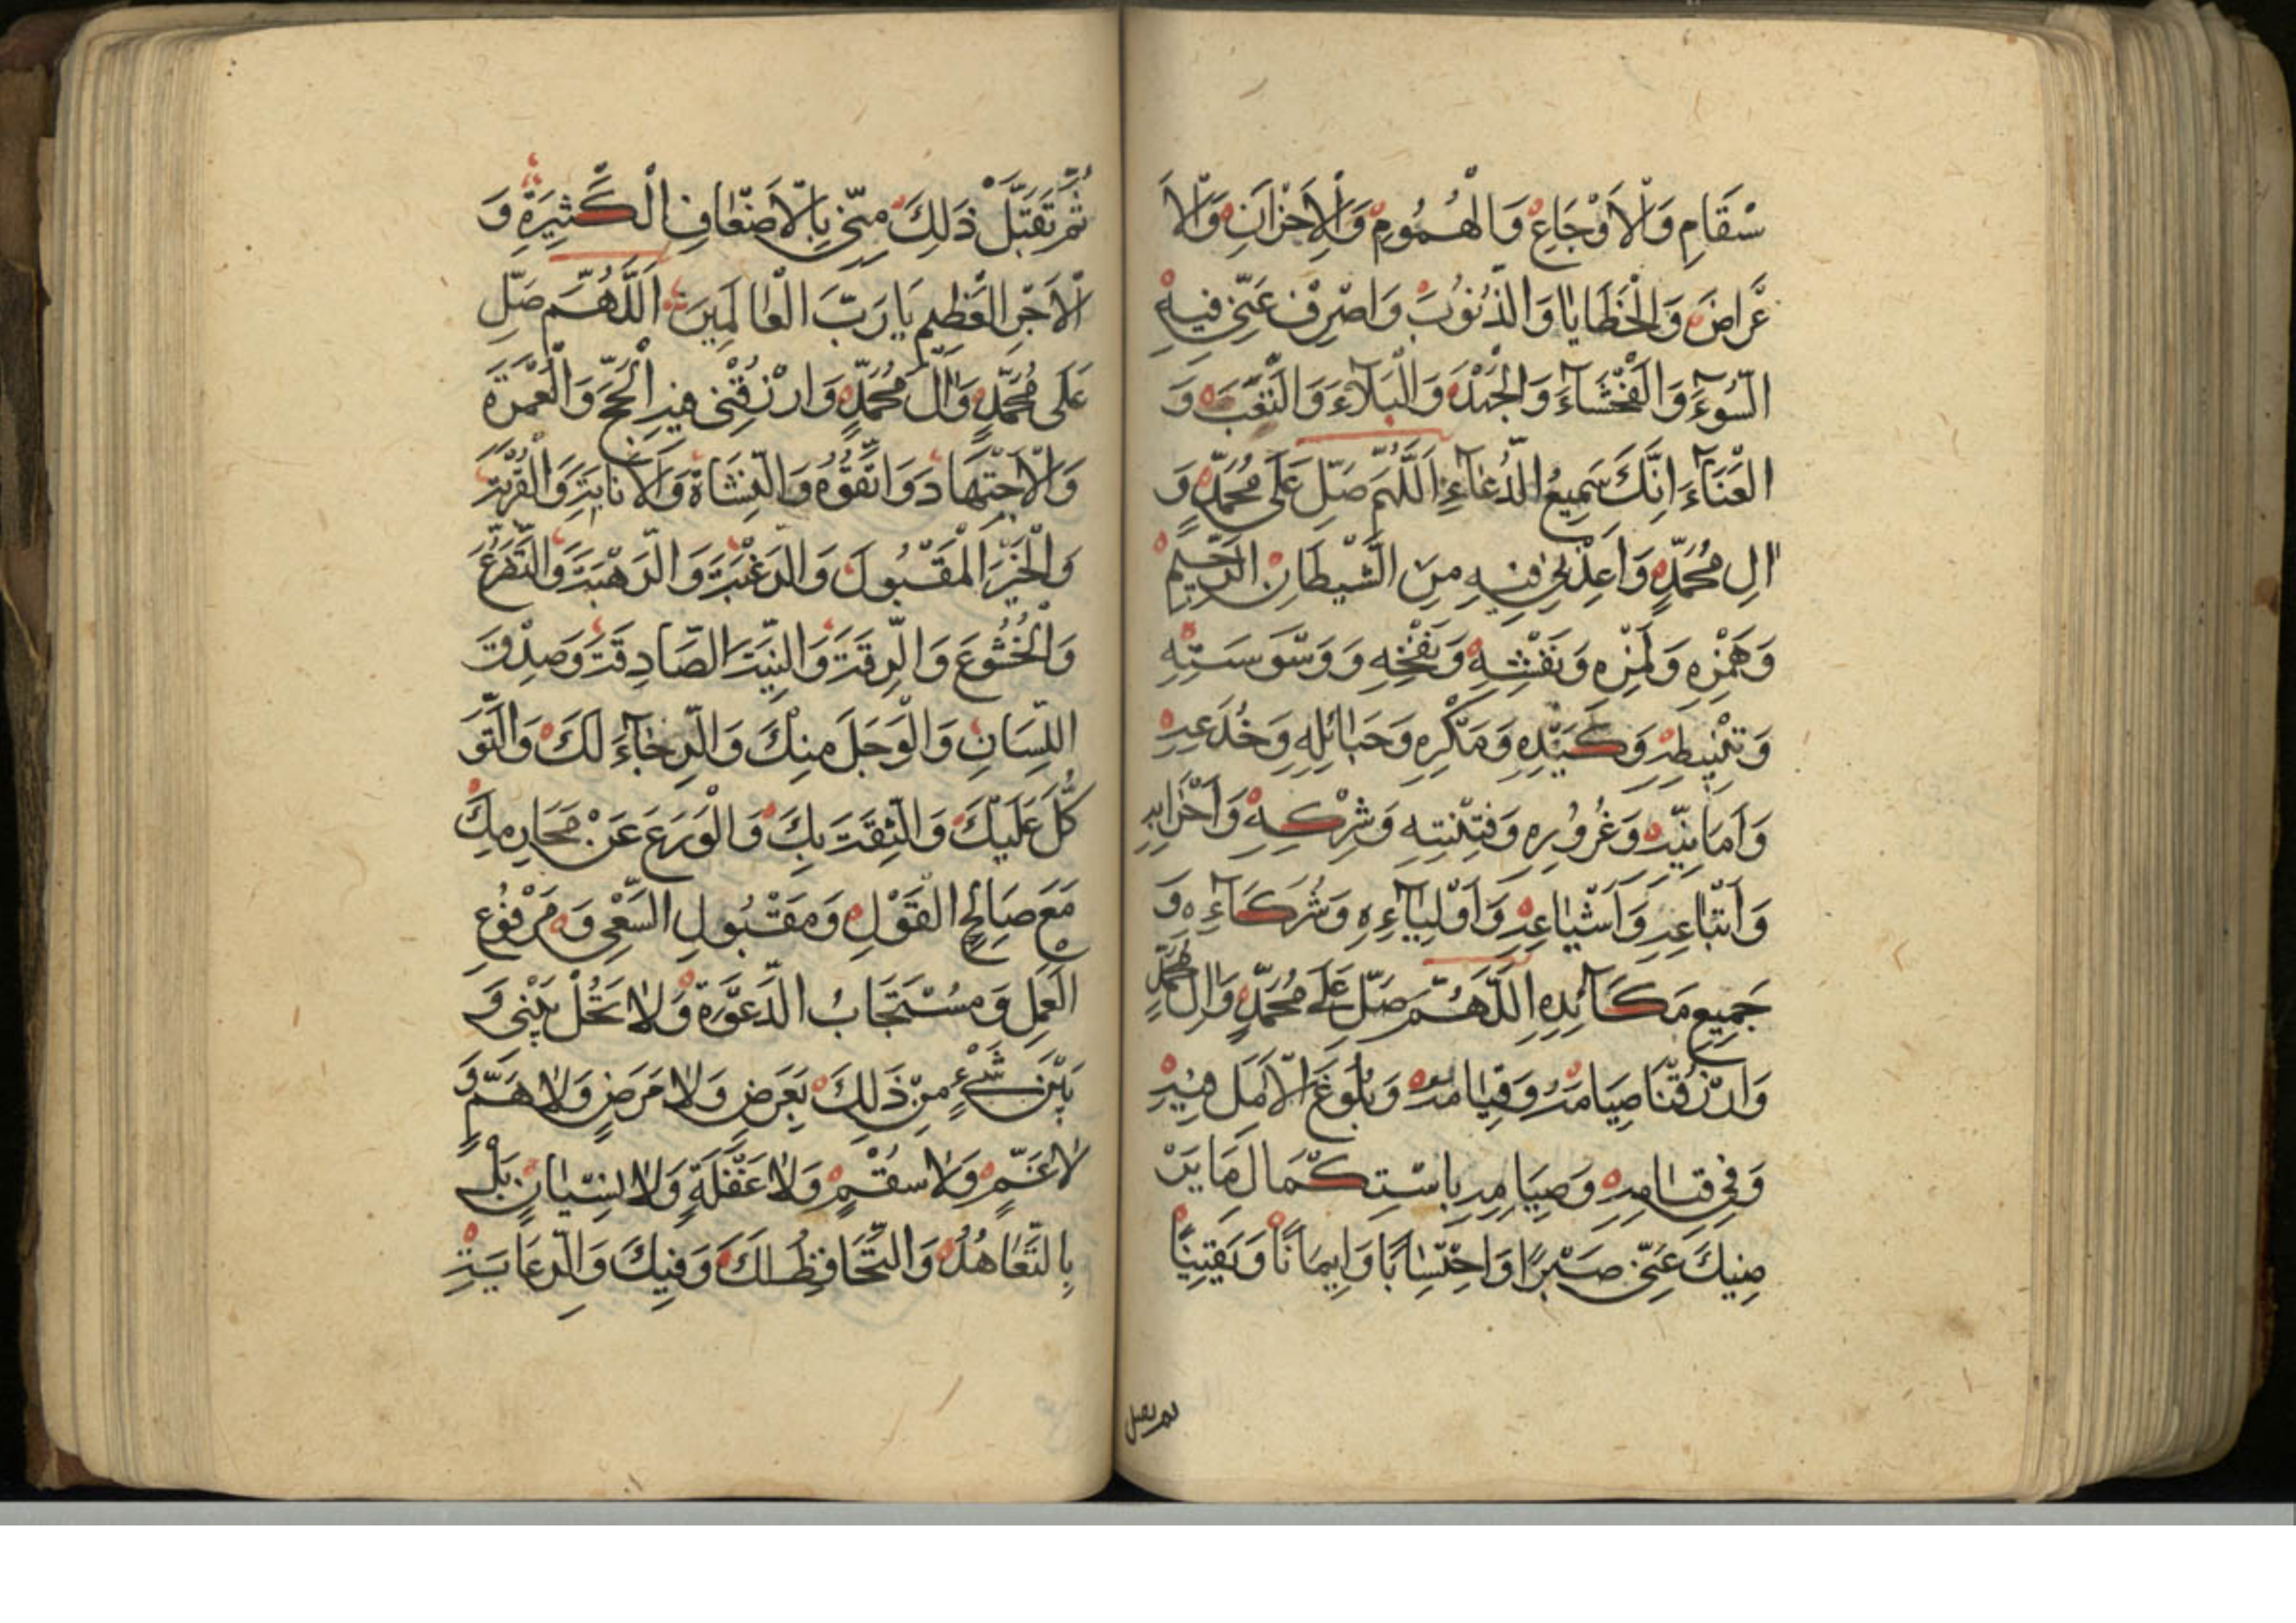 سْقَامِ وَالْاَوْجَاعِ وَالْهُمُومِ وَالْاَحْزَانِ وَالْاَ
عْرَاضَ وَالْخَطَايَا وَالذُّنُوبَ وَاصْرِفْ عَنّي فيهِ
السُّوءَ وَالْفَحْشَآءَ وَالْجَهْدَ وَالْبَلَآءَ وَالتَّعَبَ وَ
الْعَنَآءَ اِنَّكَ سَمِيعُ الدُّعَآءِ اَللّهُمَّ صَلِّ عَلَى مُحَمَّدٍ وَ
الِ مُحَمَّدٍ وَاَعِذْنِي فِيهِ مِنَ الشَّيْطَانِ الرَّجِيمِ
وَهَمْزِهِ وَلَمْزِهِ وَنَفْثِهِ وَنَفْخِهِ وَوَسْوَسَتِهِ
وَتَثْبِيطِهِ وَكَيْدِهِ وَمَكْرِهِ وَحَبَائِلِهِ وَخُدَعِهِ
وَاَمَانِيِّهِ وَغُرُورِهِ وَفِتْنَتِهِ وَشِرْكِهِ وَاَحْزَابِهِ
وَاَتْبَاعِهِ وَاَشْيَاعِهِ وَاَوْلِيَآءِهِ وَشُرَكَآءِهِ وَ
جَمِيعِ مَكَآئِدِهِ اَللّهُمَّ صَلِّ عَلَى مُحَمَّدٍ وَالِ مُحَمَّدٍ
وَارْزُقْنَا صِيَامَهُ وَقِيَامَهُ وَبُلُوغَ الْاَمَلِ فِيهِ
وَفِي قِيَامِهِ وَصِيَامِهِ بِاسْتِكْمَالَ مَا يَرْ
ضِيكَ عَنّي صَبْرًا وَاحْتِسَابًا وَاِيمَانًا وَيَقِينًا
ثُمَّ تَقَبَّلْ ذَلِكَ مِنّي بِالْاَضْعَافِ الْكَثِيرَةِ وَ
الْاَجْرِ الْعَظِيمِ يَا رَبَّ الْعَالَمِينَ اَللّهُمَّ صَلِّ
عَلَى مُحَمَّدٍ وَالِ مُحَمَّدٍ وَارْزُقْنِي فِيهِ الْحَجَّ وَالْعُمْرَةَ
وَالْاِجْتِهَادَ وَالْقُوَّةَ وَالنَّشَاةَ وَالْاَنَابَةَ وَالْقُرْبَةَ
وَالْخَيْرَ الْمَقْبُولَ وَالرَّغْبَةَ وَالرَّهْبَةَ وَالتَّضَرُّعَ
وَالْخُشُوعَ وَالرِّقَّةَ وَالنِّيَّةَ الصَّادِقَةَ وَصِدْقَ
اللِّسَانِ وَالْوَجَلَ مِنْكَ وَالرَّجَآءَ لَكَ وَالتَّوَ
كُّلَ عَلَيْكَ وَالثِّقَةَ بِكَ وَالْوَرَعَ عَنْ مَحَارِمِكَ
مَعَ صَالِحِ الْقَوْلِ وَمَقْبُولِ السَّعْيِ وَمَرْفُوعِ
الْعَمَلِ وَمُسْتَجَابِ الدَّعْوَةِ وَلَا تَحُلْ بَيْنِي وَ
بَيْنَ شَيْءٍ مِنْ ذَلِكَ بِعَرَضٍ وَلَا مَرَضٍ وَلَا هَمٍّ وَ
لَا غَمٍّ وَلَا سُقْمٍ وَلَا غَفْلَةٍ وَلَا نِسْيَانٍ بَلْ
بِالتَّعَاهُدِ وَالتَّحَافُظِ لَكَ وَفِيكَ وَالرِّعَايَةِ